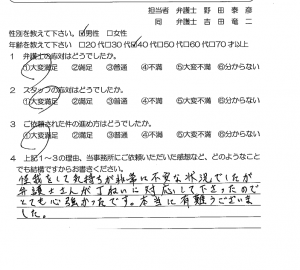 担当者 弁護士 野田 泰彦
同 弁護士 吉田 竜二
性別を教えて下さい。 ☑男性 □女性
年齢を教えて下さい □20代□30代☑40代□50代□60代□70才以上
1 弁護士の応対はどうでしたか。
①大変満足 ②満足 ③普通 ④不満 ⑤大変不満 ⑥分からない
2 スタッフの応対はどうでしたか。
①大変満足 ②満足 ③普通 ④不満 ⑤大変不満 ⑥分からない
3 ご依頼された件の進め方はどうでしたか。
①大変満足 ②満足 ③普通 ④不満 ⑤大変不満 ⑥分からない
4 上記1～3の理由、当事務所にご依頼いただいた感想など、どのようなこと
でも結構ですからお書きください。
怪我をして気持ちが非常に不安な状況でしたが
弁護士さんが丁ねいに対応して下さったので
とても心強かったです。本当に有難うございま
した。